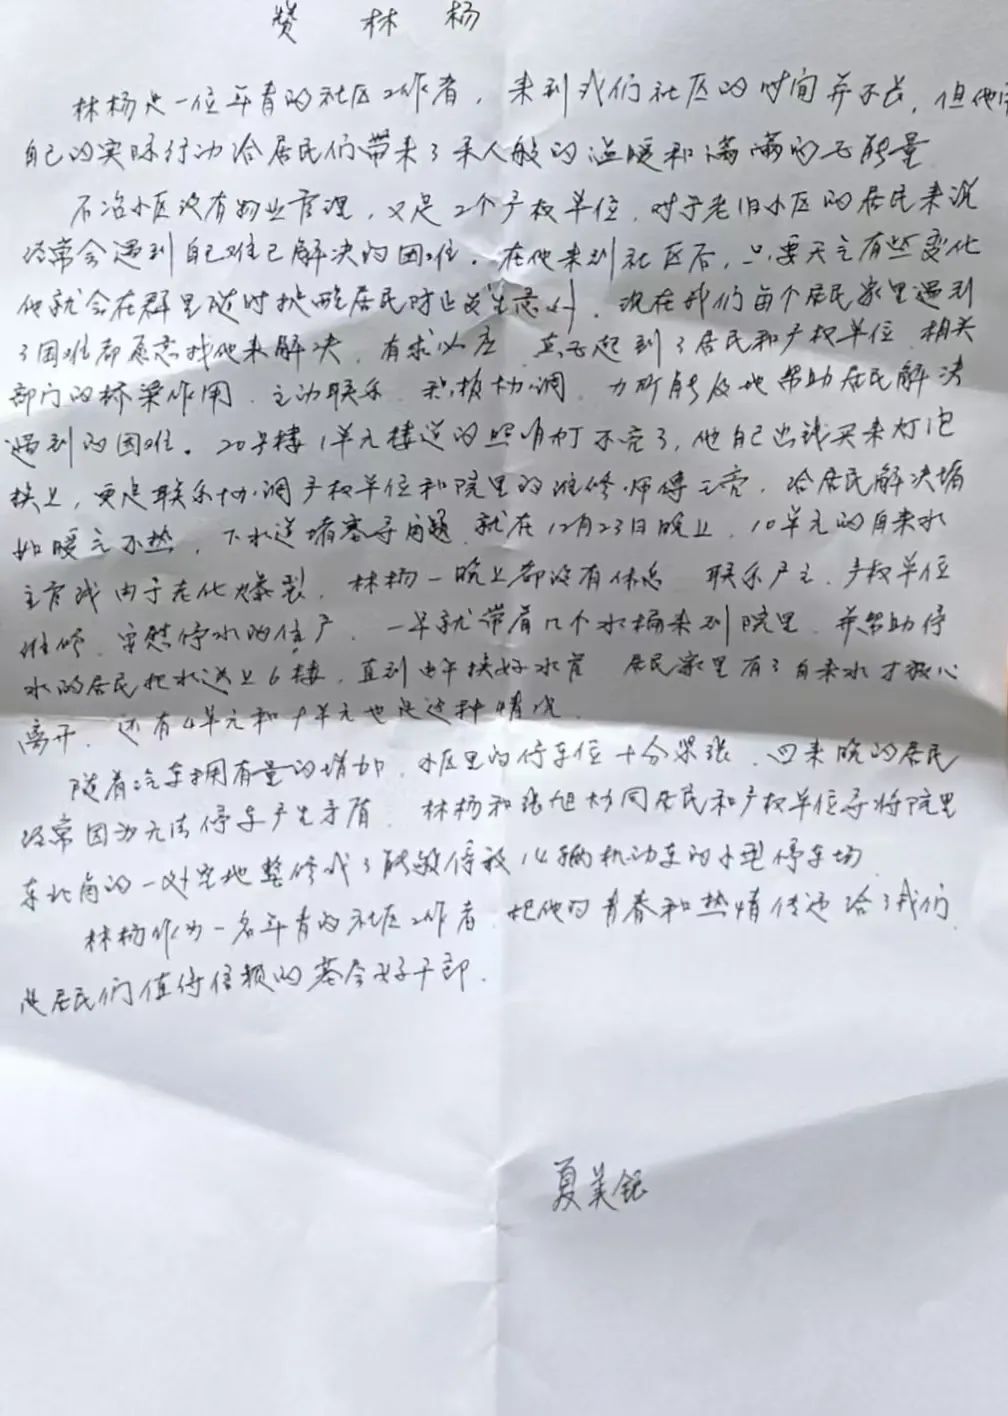 赞 林 杨
林杨是一位年青的社区工作者，来到我们社区的时间并不长，但他用
自己的实际行动给居民们带来了亲人般的温暖和满满的正能量
不冶小区没有物业管理，又是2个产权单位，对于老旧小区的居民来说
经常会遇到自己难已解决的困难。在他来到社区后，只要天气有些变化
他就会在群里随时提醒居民防止发生意外，现在我们每个居民家里遇到
了困难都愿意找他来解决，有求必应 真正起到了居民和产权单位、相关
部门的桥梁作用、主动联系 积极协调 力所能及地帮助居民解决
遇到的困难。20号楼1单元楼道的照明灯不亮了，他自己出钱买来灯泡
换上，更是联系协调产权单位和院里的维修师傅 给居民解决
如暖气不热，下水道堵塞等问题、就在12月23日晚上，10单元的自来水
主管线由于老化爆裂，林杨一晚上都没有休息 联系户主、产权单位
维修、突然停水的住户，一早就带着几个水桶来到院里、并帮助停
水的居民把水送上6楼，直到中午换好水管 居民家里有了自来水才放心
离开、还有4单元和9单元也是这种情况
随着汽车拥有量的增加，小区里的停车位十分紧张、回来晚的居民
经常因为无法停车产生矛盾 林杨和张旭协同居民和产权单位等将院里
东北角的一块空地整修成了能够停放14辆机动车的小型停车场
林杨作为一名年青的社区工作者、把他的青春和热情传递给了我们
是居民们值得信赖的基层好干部.
夏美银